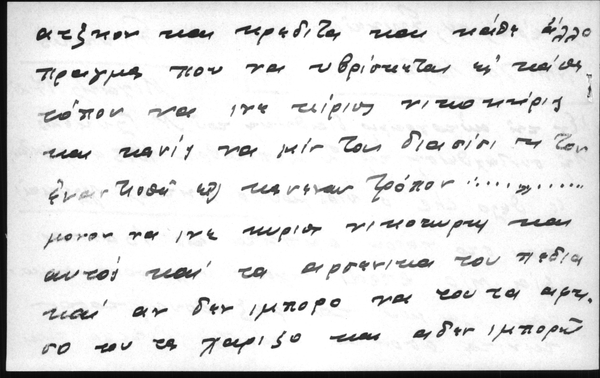 ατξιον και κρεδιτα και κάθε άλλο
πραγμα που να υβρίσκεται εἰ κάθε
τόπον να ινε κίριος νικοκκίρις
και κανίς να μίν του διασίσι η τον
ἐναντιοθῆ εἰς κανεναν τρόπον
μονον να ινε κυριος νικοκυρις και
αυτός καί τα αρσενικα του πεδια
καί αν δεν ιμπορο να του τα αφι-
σο του τα χαριζο και αδεν ιμπορῶ